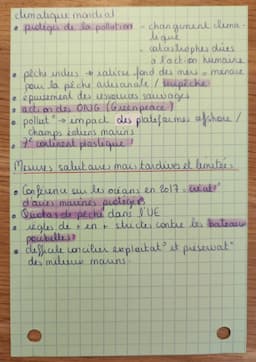 climatique mondial
• protéger de la pollution - changement clima-
tique
- catastrophes dues
à l'action humaine
• pêche indus → ratisse fond des mers = menace
pour la pêche artisanale / surpêche
• épuisement des ressources sauvages
• action des ONG (Greenpeace)
• pollut° → impact des plateformes offshore /
champs éoliens marins
• 7e continent plastique
Mesures salutaires mais tardives et limitées
• Conférence sur les océans en 2017 : créat°
d'aires marines protégées
• Quotas de pêche dans l'UE
• règles de + en + strictes contre les bateaux
poubelles
• difficile concilier exploitat° et préservat°
des milieux marins